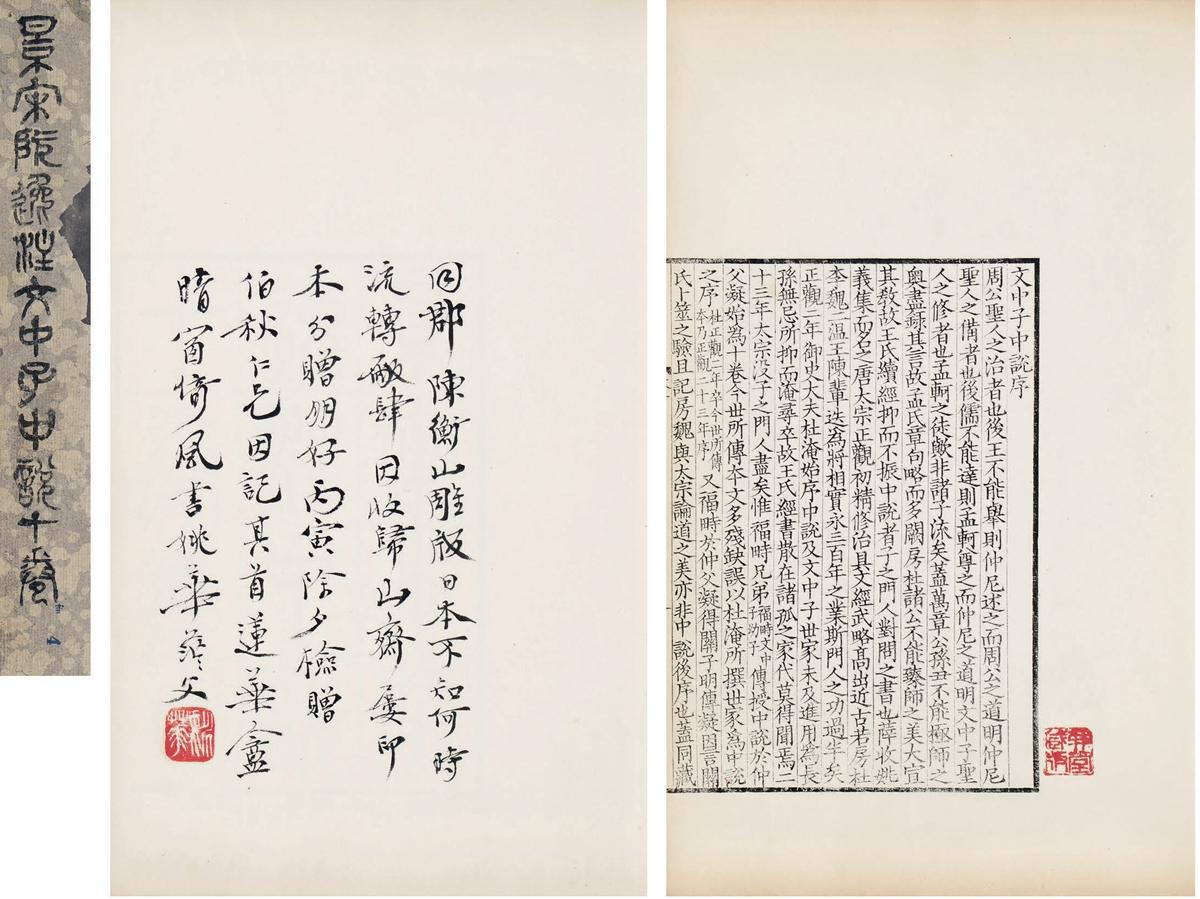 景宋阮逸注文中子中說十卷
同郡陳衡山雕版日本不知何時
流轉廠肆因收歸山齋屢印
本分贈朋好丙寅除夕檢贈
伯秋仁兄因記其首蓮華盦
晴窗倚風書姚華茫父
文中子中說序
周公聖人之治者也後王不能舉則仲尼述之而周公之道明仲尼
聖人之備者也後儒不能達則孟軻尊之而仲尼之道明文中子聖
人之修者也孟軻之徒歟非諸子流矣蓋萬章公孫丑不能極師之
奧盡錄其言故孟氏章句略而多闕房杜諸公不能臻師之美大宣
其敎故王氏續經抑而不振中說者子之門人對問之書也薛收姚
義集而名之唐太宗正觀初精修治具文經武略高出近古若房杜
李魏二溫王陳輩迭為將相實永三百年之業斯門人之功過半矣
正觀二年御史大夫杜淹始序中說及文中子世家未及進用為長
孫無忌所抑而淹尋卒故王氏經書散在諸孤之家代莫得聞焉二
十三年太宗沒子之門人盡矣惟福畤兄弟福畤文中子仲子傳授中說於仲
父凝始為十卷今世所傳本文多殘缺誤以杜淹所撰世家為中說
之序杜正觀二年卒今世所傳本乃正觀二十三年序又福畤於仲父凝得關子明傳凝因言關
氏卜筮之驗且記房魏與太宗論道之美亦非中說後序也蓋同藏